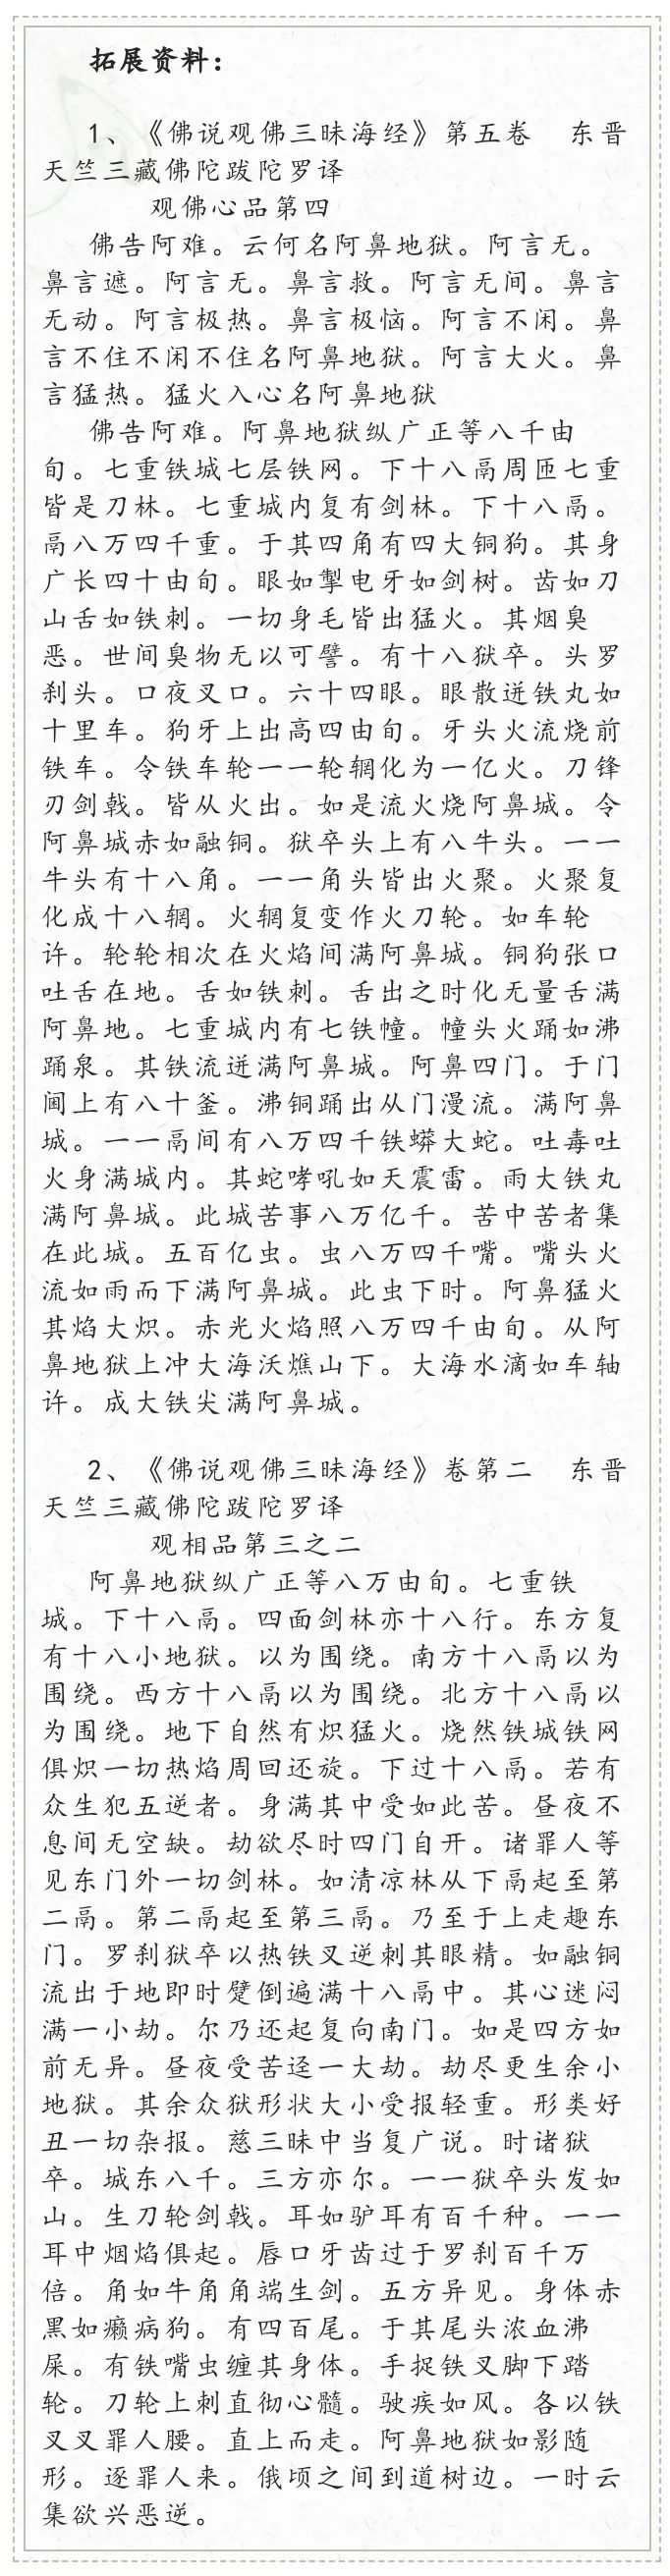 拓展资料：
1、《佛说观佛三昧海经》第五卷　东晋
天竺三藏佛陀跋陀罗译
观佛心品第四
佛告阿难。云何名阿鼻地狱。阿言无。
鼻言遮。阿言无。鼻言救。阿言无间。鼻言
无动。阿言极热。鼻言极恼。阿言不闲。鼻
言不住不闲不住名阿鼻地狱。阿言大火。鼻
言猛热。猛火入心名阿鼻地狱
佛告阿难。阿鼻地狱纵广正等八千由
旬。七重铁城七层铁网。下十八鬲周匝七重
皆是刀林。七重城内复有剑林。下十八鬲。
鬲八万四千重。于其四角有四大铜狗。其身
广长四十由旬。眼如掣电牙如剑树。齿如刀
山舌如铁刺。一切身毛皆出猛火。其烟臭
恶。世间臭物无以可譬。有十八狱卒。头罗
刹头。口夜叉口。六十四眼。眼散迸铁丸如
十里车。狗牙上出高四由旬。牙头火流烧前
铁车。令铁车轮一一轮辋化为一亿火。刀锋
刃剑戟。皆从火出。如是流火烧阿鼻城。令
阿鼻城赤如融铜。狱卒头上有八牛头。一一
牛头有十八角。一一角头皆出火聚。火聚复
化成十八辋。火辋复变作火刀轮。如车轮
许。轮轮相次在火焰间满阿鼻城。铜狗张口
吐舌在地。舌如铁刺。舌出之时化无量舌满
阿鼻地。七重城内有七铁幢。幢头火踊如沸
踊泉。其铁流迸满阿鼻城。阿鼻四门。于门
阃上有八十釜。沸铜踊出从门漫流。满阿鼻
城。一一鬲间有八万四千铁蟒大蛇。吐毒吐
火身满城内。其蛇哮吼如天震雷。雨大铁丸
满阿鼻城。此城苦事八万亿千。苦中苦者集
在此城。五百亿虫。虫八万四千嘴。嘴头火
流如雨而下满阿鼻城。此虫下时。阿鼻猛火
其焰大炽。赤光火焰照八万四千由旬。从阿
鼻地狱上冲大海沃燋山下。大海水滴如车轴
许。成大铁尖满阿鼻城。
2、《佛说观佛三昧海经》卷第二　东晋
天竺三藏佛陀跋陀罗译
观相品第三之二
阿鼻地狱纵广正等八万由旬。七重铁
城。下十八鬲。四面剑林亦十八行。东方复
有十八小地狱。以为围绕。南方十八鬲以为
围绕。西方十八鬲以为围绕。北方十八鬲以
为围绕。地下自然有炽猛火。烧然铁城铁网
俱炽一切热焰周回还旋。下过十八鬲。若有
众生犯五逆者。身满其中受如此苦。昼夜不
息间无空缺。劫欲尽时四门自开。诸罪人等
见东门外一切剑林。如清凉林从下鬲起至第
二鬲。第二鬲起至第三鬲。乃至于上走趣东
门。罗刹狱卒以热铁叉逆刺其眼精。如融铜
流出于地即时躄倒遍满十八鬲中。其心迷闷
满一小劫。尔乃还起复向南门。如是四方如
前无异。昼夜受苦迳一大劫。劫尽更生余小
地狱。其余众狱形状大小受报轻重。形类好
丑一切杂报。慈三昧中当复广说。时诸狱
卒。城东八千。三方亦尔。一一狱卒头发如
山。生刀轮剑戟。耳如驴耳有百千种。一一
耳中烟焰俱起。唇口牙齿过于罗刹百千万
倍。角如牛角角端生剑。五方异见。身体赤
黑如癞病狗。有四百尾。于其尾头浓血沸
屎。有铁嘴虫缠其身体。手捉铁叉脚下踏
轮。刀轮上刺直彻心髓。驶疾如风。各以铁
叉叉罪人腰。直上而走。阿鼻地狱如影随
形。逐罪人来。俄顷之间到道树边。一时云
集欲兴恶逆。